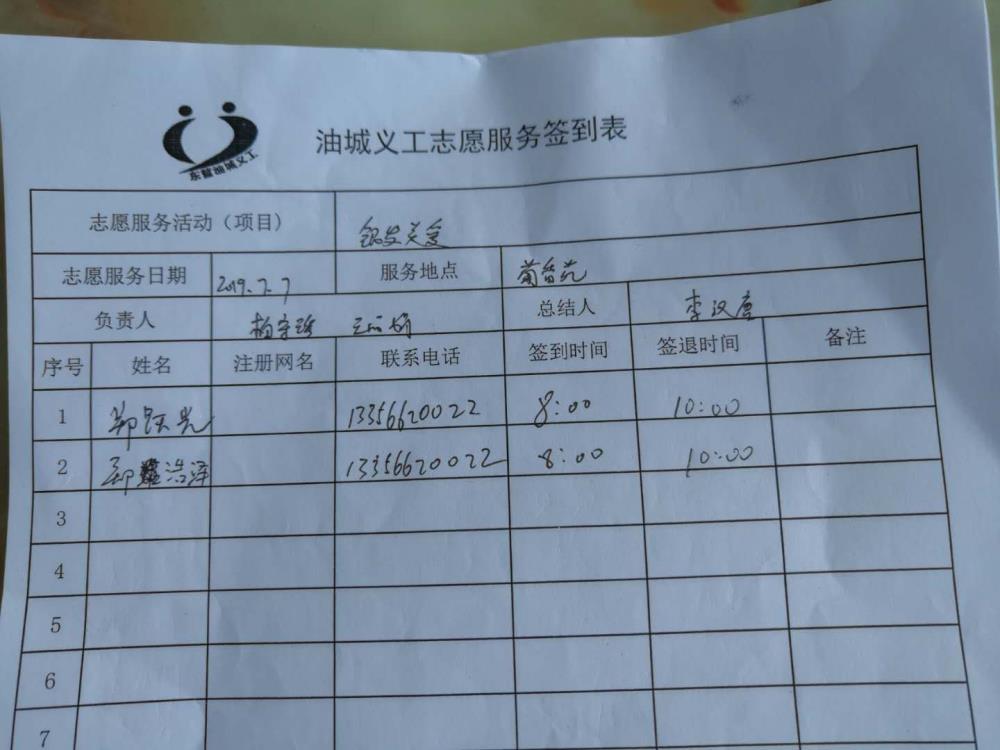 东营油城义工
油城义工志愿服务签到表
志愿服务活动（项目） 银发关爱
志愿服务日期 2019.7.7 服务地点 葡萄苑
负责人 总结人 李汉唐
序号 姓名 注册网名 联系电话 签到时间 签退时间 备注
1 郑跃光 13356620022 8:00 10:00
2 郑浩泽 13356620022 8:00 10:00
3
4
5
6
7